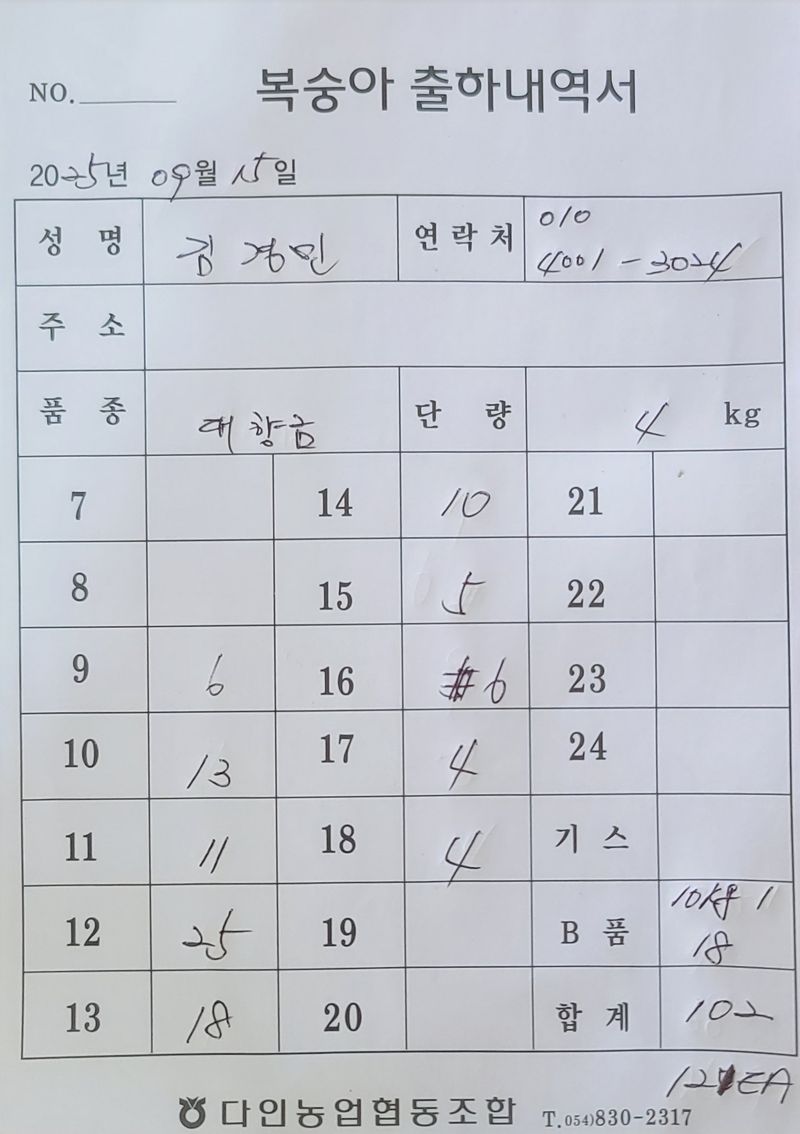 NO.
복숭아 출하내역서
2025년 09월 15일
성 명 김경민 연락처 010
4001-3024
주 소
품 종 대향금 단 량 4 kg
7 14 10 21
8 15 5 22
9 6 16 6 23
10 13 17 4 24
11 11 18 4 기 스
12 25 19 B 품 10kg 1
18
13 18 20 합 계 102
다인농업협동조합 T.054)830-2317